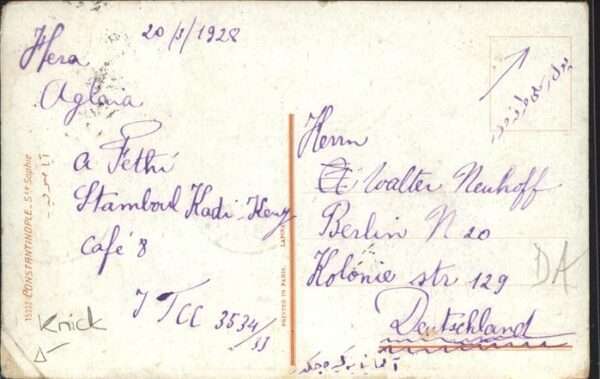 20/3/1928
Hera
Aglaia
a Fethi
Stamboul Kadi-Keuy
Café 8
J TCC 3534/33
Knick
15322 CONSTANTINOPLE. Ste Sophie
آيا صوفيه
PRINTED IN PARIS.
Herrn
Walter Neuhoff
Berlin N 20
Kolonie str 129
Deutschland
DA